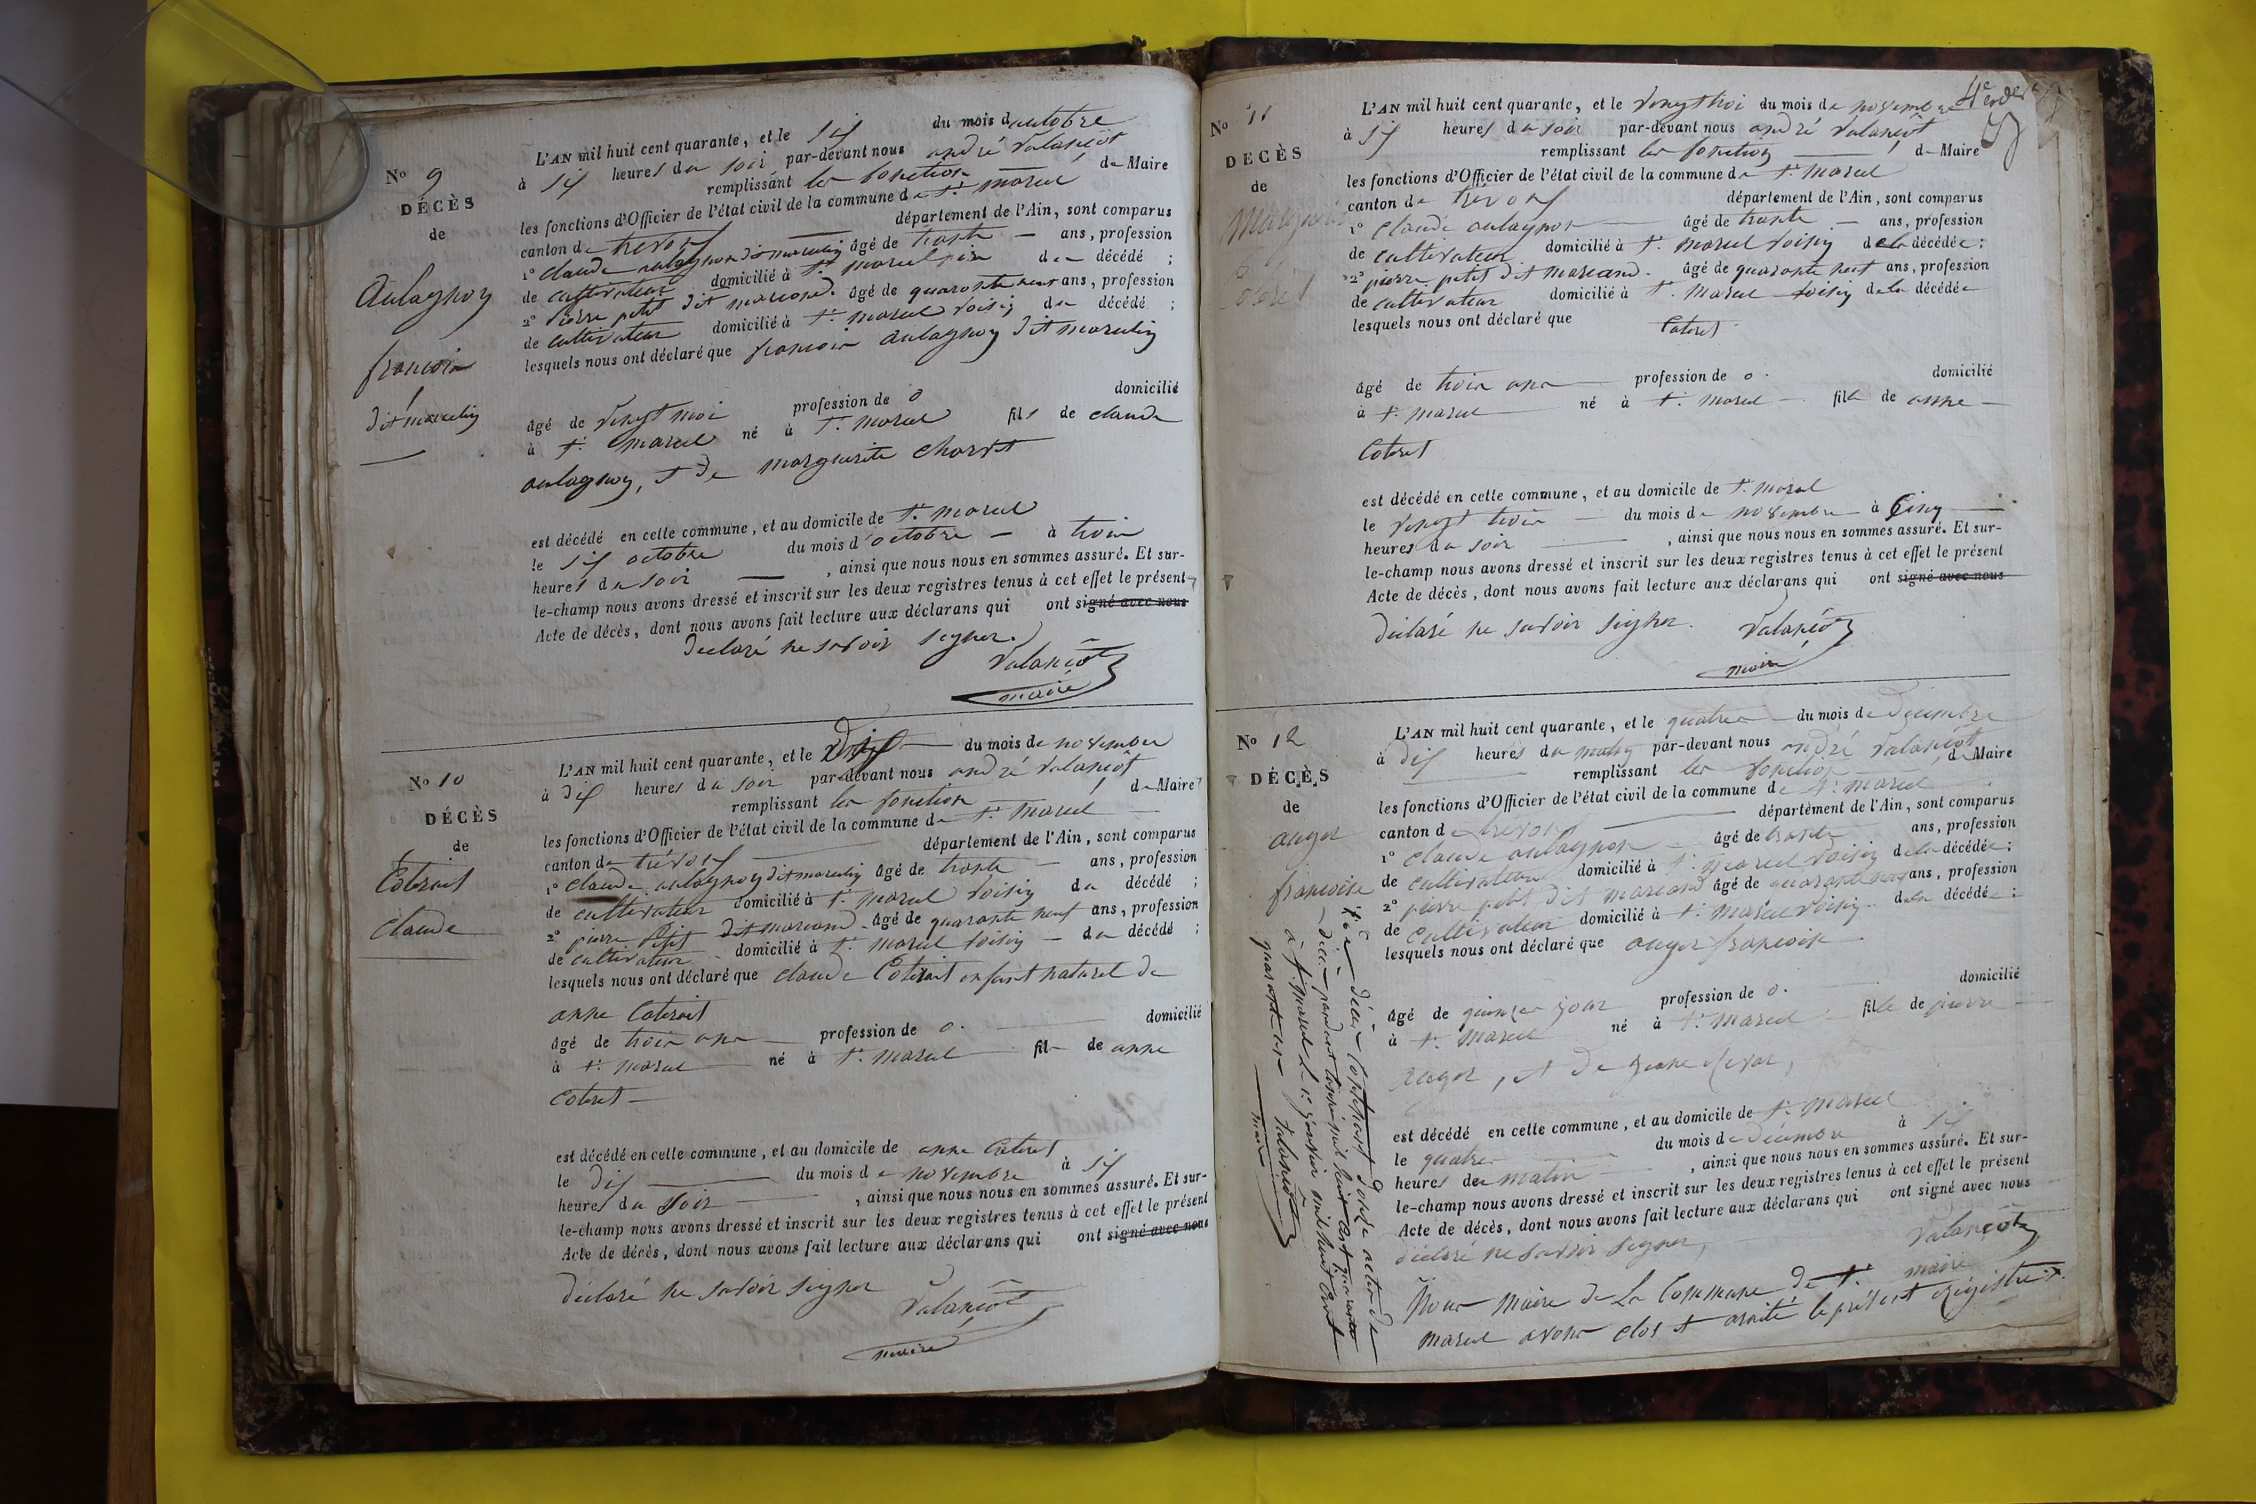 No 9
DÉCÈS
de
aulagnoy
francois
dit marulin
L'AN mil huit cent quarante, et le six du mois d octobre
à six heures du soir par-devant nous andré Valançôt
remplissant les fonction de Maire
les fonctions d'Officier de l'état civil de la commune de St. marcel
canton de trévoux département de l'Ain, sont comparus
1o claude aulagnon dit marulin âgé de trante ans, profession
de cultivateur domicilié à St. marcel père du décédé ;
2o pierre petit dit marcand. âgé de quarante neuf ans, profession
de cultivateur domicilié à St. marcel voisin du décédé ;
lesquels nous ont déclaré que francois aulagnoy dit marulin
âgé de vingt moi profession de o domicilié
à St. marcel né à St. marcel fils de claude
aulagnoy, et de marguerite charvet
est décédé en cette commune, et au domicile de St. marcel
le six octobre du mois d'octobre à trois
heures du soir, ainsi que nous nous en sommes assuré. Et sur-
le-champ nous avons dressé et inscrit sur les deux registres tenus à cet effet le présent
Acte de décès, dont nous avons fait lecture aux déclarans qui ont signé avec nous
declaré ne savoir signer.
Valançôt
maire
No 10
DÉCÈS
de
Coterait
claude
L'AN mil huit cent quarante, et le dix du mois de novembre
à dix heures du soir par-devant nous andré Valançôt
remplissant les fonction de Maire
les fonctions d'Officier de l'état civil de la commune de St. marcel
canton de trévoux département de l'Ain, sont comparus
1o claude aulagnoy dit marulin âgé de trante ans, profession
de cultivateur domicilié à St. marcel voisin du décédé ;
2o pierre petit dit marcand. âgé de quarante neuf ans, profession
de cultivateur domicilié à St. marcel voisin du décédé ;
lesquels nous ont déclaré que claude Coterait enfant naturel de
anne Coterait
âgé de trois ans profession de o. domicilié
à St. marcel né à St. marcel fil de anne
Coteret
est décédé en cette commune, et au domicile de anne Coteret
le dix du mois de novembre à six
heures du soir, ainsi que nous nous en sommes assuré. Et sur-
le-champ nous avons dressé et inscrit sur les deux registres tenus à cet effet le présent
Acte de décès, dont nous avons fait lecture aux déclarans qui ont signé avec nous
déclaré ne savoir signer
Valançôt
maire
No 11
DECÈS
de
L'AN mil huit cent quarante, et le vingt troi du mois de novembre
à six heures du soir par-devant nous andré Valançôt
remplissant les fonction de Maire
les fonctions d'Officier de l'état civil de la commune de St. marcel
canton de trévoux département de l'Ain, sont comparus
1o claude aulagnon âgé de trante ans, profession
de cultivateur domicilié à St. marcel voisin de la décédée ;
2o pierre petit dit marcand. âgé de quarante neuf ans, profession
de cultivateur domicilié à St. marcel voisin de la décédée
lesquels nous ont déclaré que Coteret
âgé de trois ans profession de o. domicilié
à St. marcel né à St. marcel fille de anne
Coteret
est décédé en cette commune, et au domicile de St. marcel
le vingt trois du mois de novembre à Cinq
heures du soir, ainsi que nous nous en sommes assuré. Et sur-
le-champ nous avons dressé et inscrit sur les deux registres tenus à cet effet le présent
Acte de décès, dont nous avons fait lecture aux déclarans qui ont signé avec nous
déclaré ne savoir signer. Valançôt
maire
No 12
DÉCÈS
de
auger
francoise
L'AN mil huit cent quarante, et le quatre du mois de décembre
à dix heures du matin par-devant nous andré Valançôt
remplissant les fonction de Maire
les fonctions d'Officier de l'état civil de la commune de St. marcel
canton de trévoux département de l'Ain, sont comparus
1o claude aulagnon âgé de trante ans, profession
de cultivateur domicilié à St. marcel voisin de la décédée ;
2o pierre petit dit marcand âgé de quarante neuf ans, profession
de cultivateur domicilié à St. marcel voisin. de la décédée ;
lesquels nous ont déclaré que auger francoise
âgé de quinze jour profession de o. domicilié
à St. marcel né à St. marcel fille de pierre
auger, et de
est décédé en cette commune, et au domicile de St. marcel
le quatre du mois de décembre à six
heures du matin, ainsi que nous nous en sommes assuré. Et sur-
le-champ nous avons dressé et inscrit sur les deux registres tenus à cet effet le présent
Acte de décès, dont nous avons fait lecture aux déclarans qui ont signé avec nous
déclaré ne savoir signer, Valançôt
maire
Nous maire de La Commune de St.
marcel avons clos et arrêté le présent Régistre
contenant douze actes de
décès pendant mil huit cent quarante
à St. marcel le 1er janvier mil huit cent
quarante un Valançôt
maire